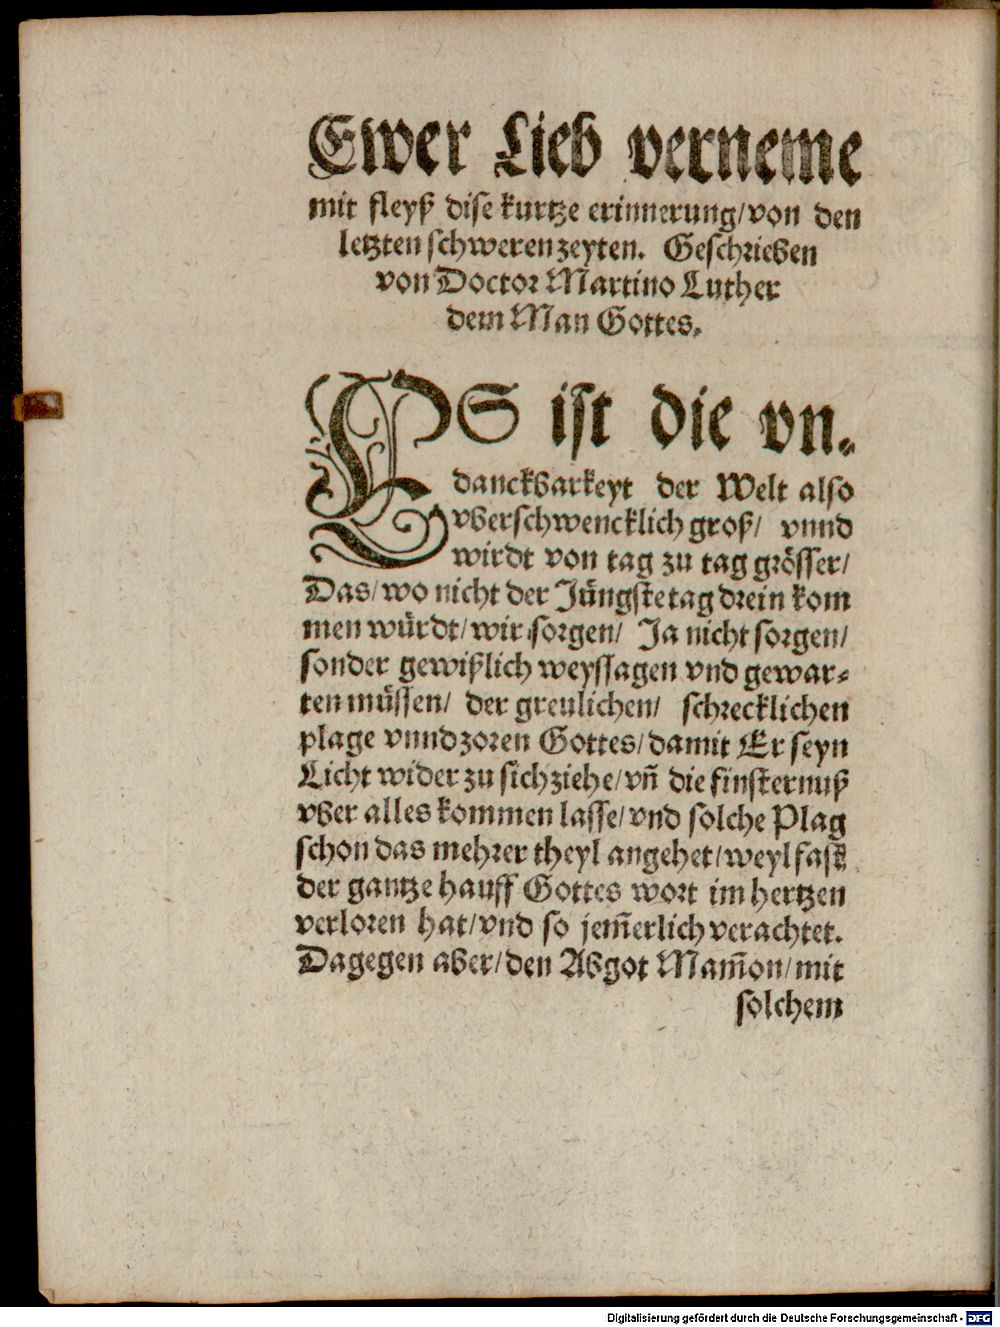 Ewer Lieb verneme
mit fleyß dise kurtze erinnerung/von den
letzten schweren zeyten. Geschrieben
von Doctor Martino Luther
dem Man Gottes.
ES ist die vn-
danckbarkeyt der Welt also
vberschwencklich groß/ vnnd
wirdt von tag zu tag grösser/
Das/wo nicht der Jüngste tag drein kom
men würdt/wir sorgen/ Ja nicht sorgen/
sonder gewißlich weyssagen vnd gewar-
ten müssen/ der greulichen/ schrecklichen
plage vnnd zoren Gottes/damit Er seyn
Licht wider zu sich ziehe/vñ die finsternuß
vber alles kommen lasse/vnd solche Plag
schon das mehrer theyl angehet/weyl fast
der gantze hauff Gottes wort im hertzen
verloren hat/vnd so jem̃erlich verachtet.
Dagegen aber/den Abgot Mam̃on/mit
solchem
Digitalisierung gefördert durch die Deutsche Forschungsgemeinschaft - DFG